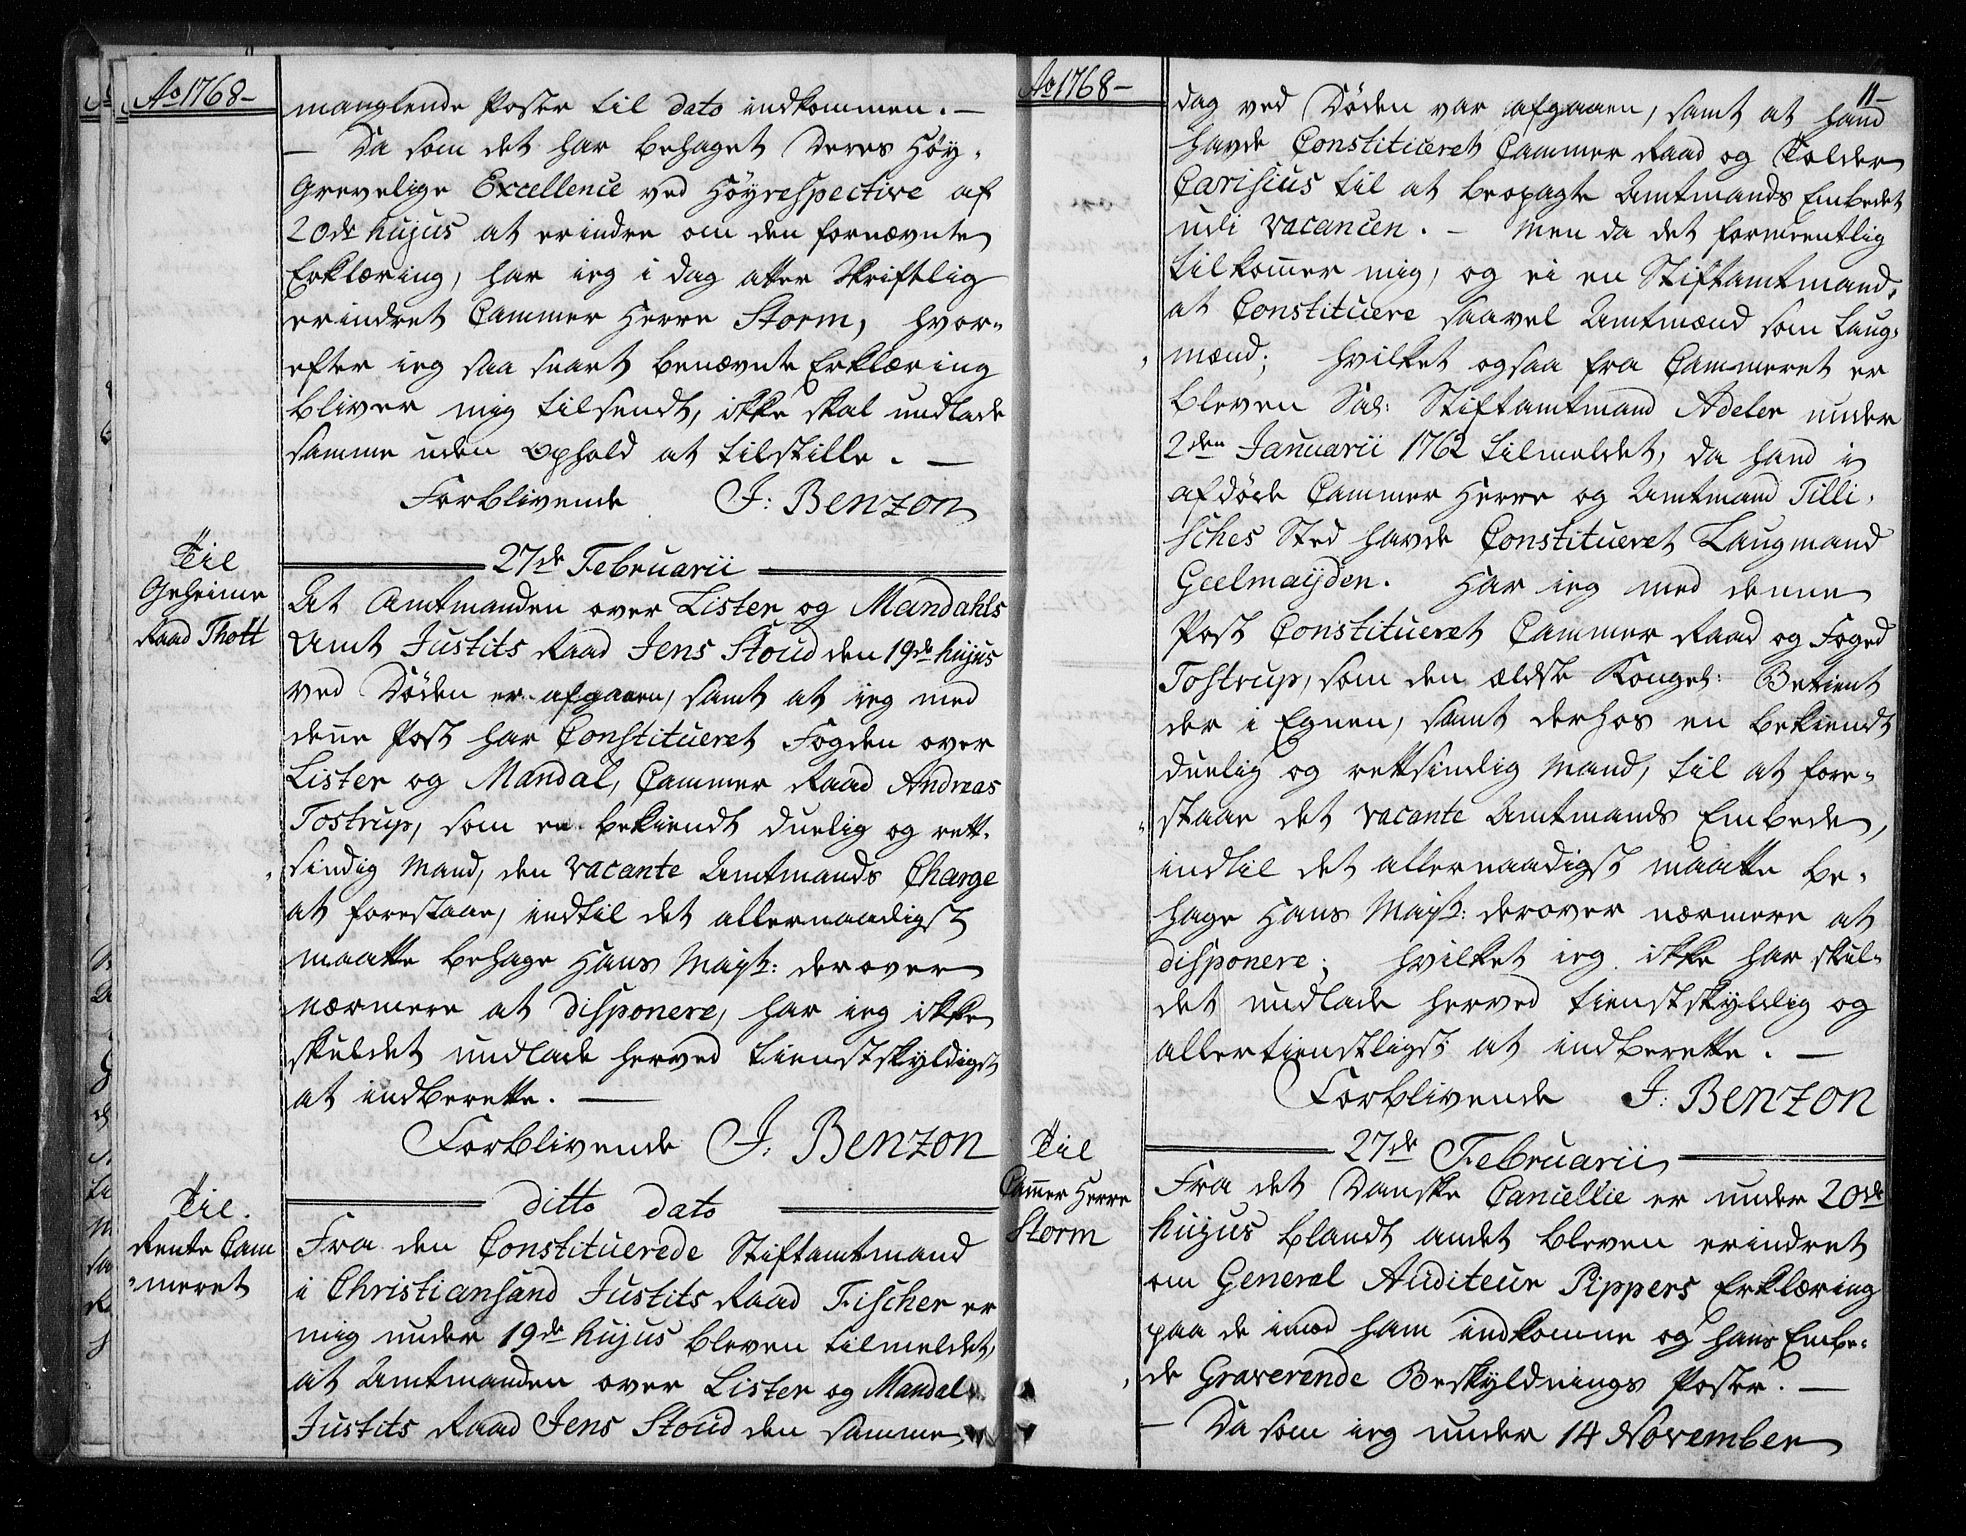 Ao 1768-
manglende Poster til dato indkommen. -
- Da som det har behaget Deres Høy-
Grevelige Excellence ved Høyrespective af
20de hujus at erindre om den fornævnte
Erklæring, har ieg i dag atter Skriftlig
erindret Cammer Herre Storm, hvor-
efter ieg saa snart benævnte Erklæring
bliver mig tilsendt, ikke skal undlade
samme uden Ophold at tilstille. -
Forblivende J: Benzon
27de Februarii
Til
Geheime
Raad Thott
At Amtmanden over Lister og Mandahls
Amt Justits Raad Jens Stoud den 19de hujus
ved Døden er afgaaen, samt at ieg med
denne Post har Constitueret Fogden over
Lister og Mandal, Cammer Raad Andreas
Tostrup, som en bekiendt duelig og rett-
sindig Mand, den vacante Amtmands Charge
at forestaae, indtil det allernaadigst
maatte behage Hans Mayst: derover
nærmere at disponere, har ieg ikke
skuldet undlade herved tienstskyldigst
at indberette. -
Forblivende J: Benzon
ditto dato
Til.
Rente Cam
-meret
Fra den Constituerede Stiftamtmand
i Christiansand Justits Raad Fischer er
mig under 19de hujus bleven tilmeldet,
at Amtmanden over Lister og Mandal
Justits Raad Jens Stoud den samme
Ao 1768-
11-
dag ved Døden var afgaaen, samt at hand
havde Constitueret Cammer Raad og Tolder
Carisius til at beopagte Amtmands Embedet
udi vacancen. - Men da det formeentlig
tilkommer mig, og ei en Stiftamtmand,
at Constituere saavel Amtmænd som Laug-
mænd; hvilket ogsaa fra Cammeret er
bleven Sal: Stiftamtmand Adeler under
2den Januarii 1762 tilmeldet, da hand i
afdøde Cammer Herre og Amtmand Tilli-
sches Sted havde Constitueret Laugmand
Geelmaijden. Har ieg med denne
Post Constitueret Cammer Raad og Foged
Tostrup, som den ældste Kongel: Betient
der i Egnen, samt derhos en bekiendt
duelig og rettsindig Mand, til at fore-
staae det vacante Amtmands Embede,
indtil det allernaadigst maatte be-
hage Hans Mayst: derover nærmere at
disponere; hvilket ieg ikke har skul-
det undlade herved tienstskyldig og
allertienstligst at indberette. -
Forblivende J: Benzon
27de Februarii
Til
Cammer Herre
Storm
Fra det Danske Cancellie er under 20de
hujus blandt andet bleven erindret
om General Auditeur Pippers Erklæring
paa de imod ham indkomne og hans Embe-
de Graverende Beskyldnings Poster. -
- Da som ieg under 14 November